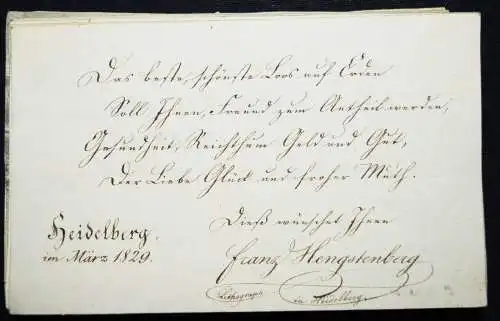 Das beste, schönste Loos auf Erden
Soll Ihnen, Freund zum Antheil werden,
Gesundheit, Reichthum Geld und Gut,
Der Liebe Glück und froher Muth.
Dieß wünschet Ihnen
Heidelberg.
im März 1829.
Franz Hengstenberg
Lithograph
in Heidelberg.